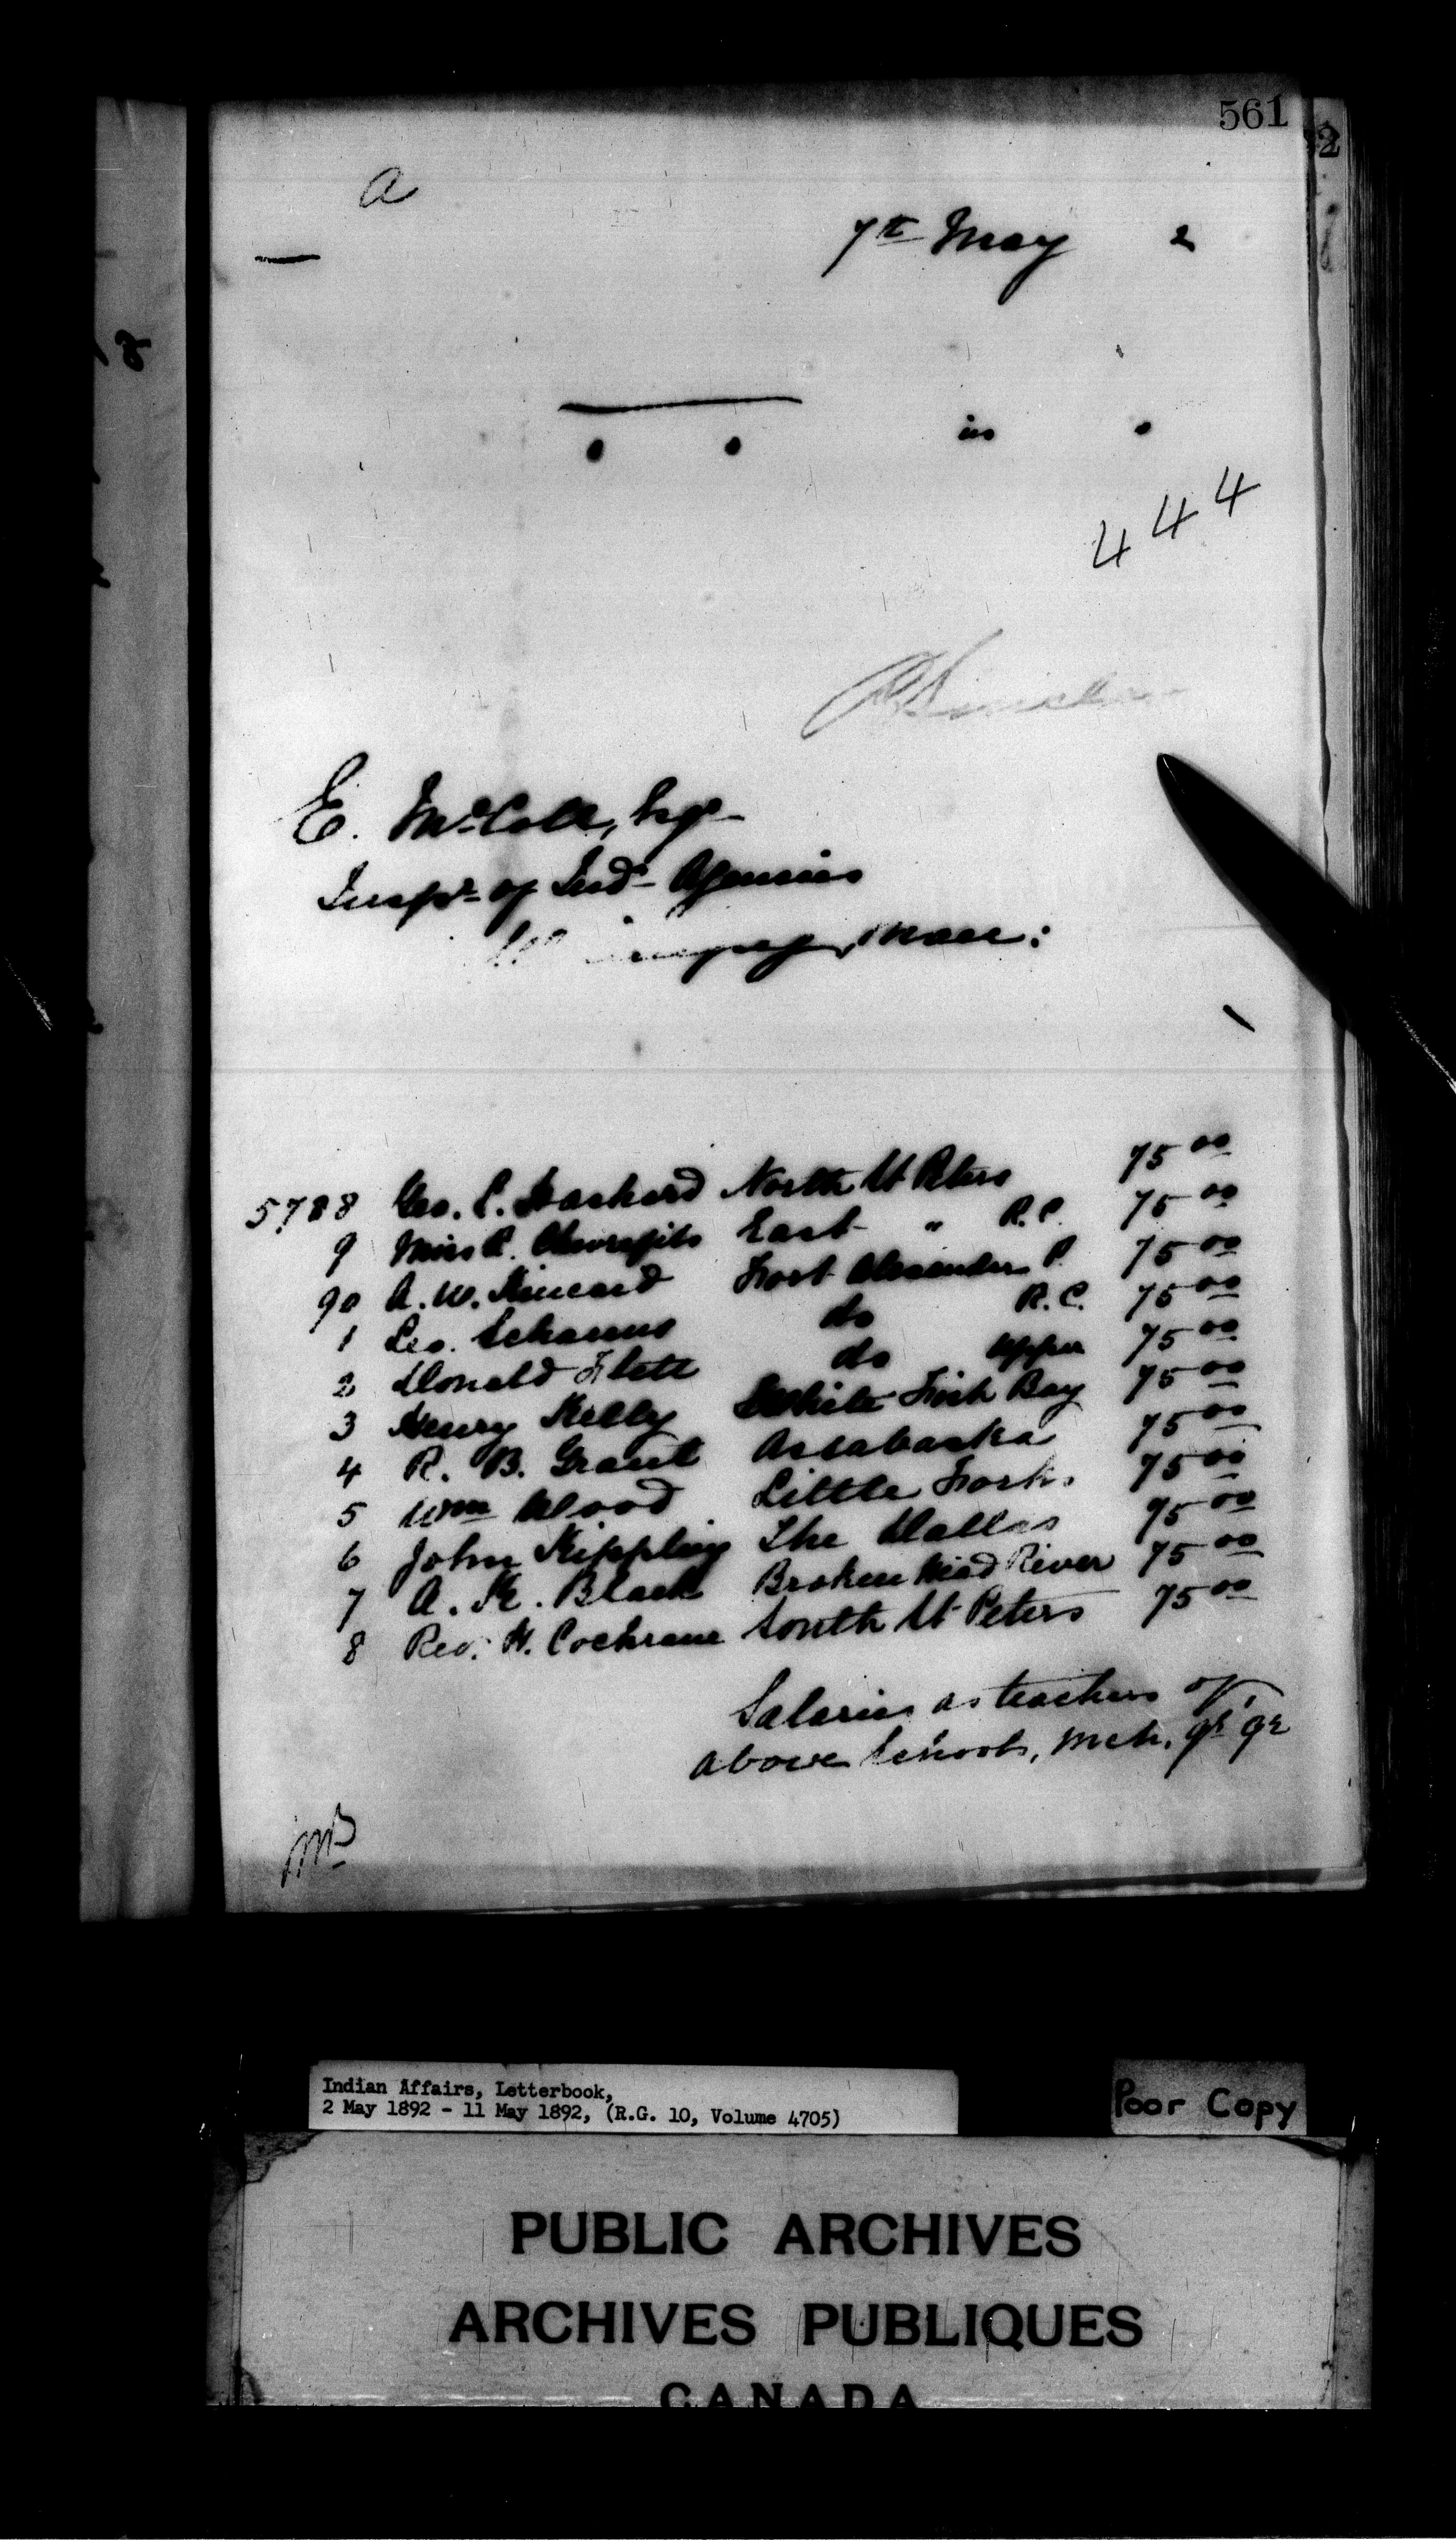 561
2
a
7th May 2
in
444
E. McColl, Esqr
Inspr of Indn Agencies
Winnipeg, Man:
5788 Geo. C. North St Peters 75 00
9 Miss R. East " R.C. 75 00
90 A. W. Kincaid Fort Alexander P. 75 00
1 Leo. do R.C. 75 00
2 Donald Flett do Upper 75 00
3 Henry Kelly White Fish Bay 75 00
4 R. B. Grant Assabaska 75 00
5 Wm Wood Little Forks 75 00
6 John Kippling The Dalles 75 00
7 A. K. Black Broken Head River 75 00
8 Rev. H. Cochrane South St Peters 75 00
Salaries as teachers of
above Schools, Mch. qr
Indian Affairs, Letterbook,
2 May 1892 - 11 May 1892, (R.G. 10, Volume 4705)
Poor Copy
PUBLIC ARCHIVES
ARCHIVES PUBLIQUES
CANADA